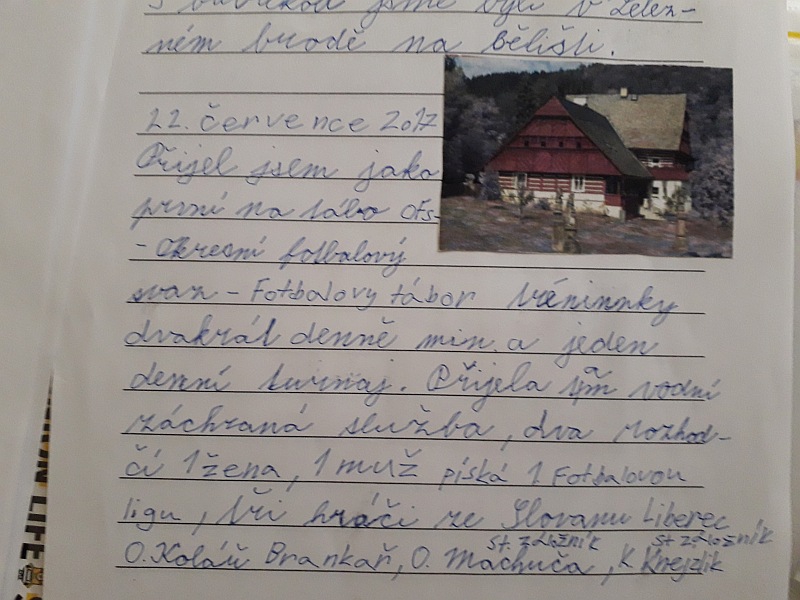 jsme byli v Želez-
ném brodě na Bělišti.
22. července 2017
Přijel jsem jako
první na tábo OFS-
-Okresní fotbalový
svaz - Fotbalový tábor tréninnky
dvakrát denně min. a jeden
denní turnaj. Přijela sem vodní
záchraná služba, dva rozhod-
čí 1 žena, 1 muž píská 1 Fotbalovou
ligu, tři hráči ze Slovanu Liberec
st. záložník st. záložník
O. Kolář Brankař, O. Machuča, K Knejzlik
LIFE